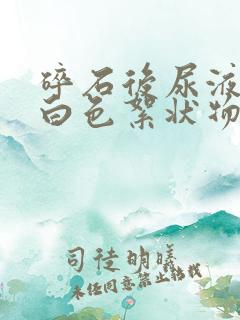 碎石後尿液
白色絮状物
司徒明曦
未经同意禁止转载